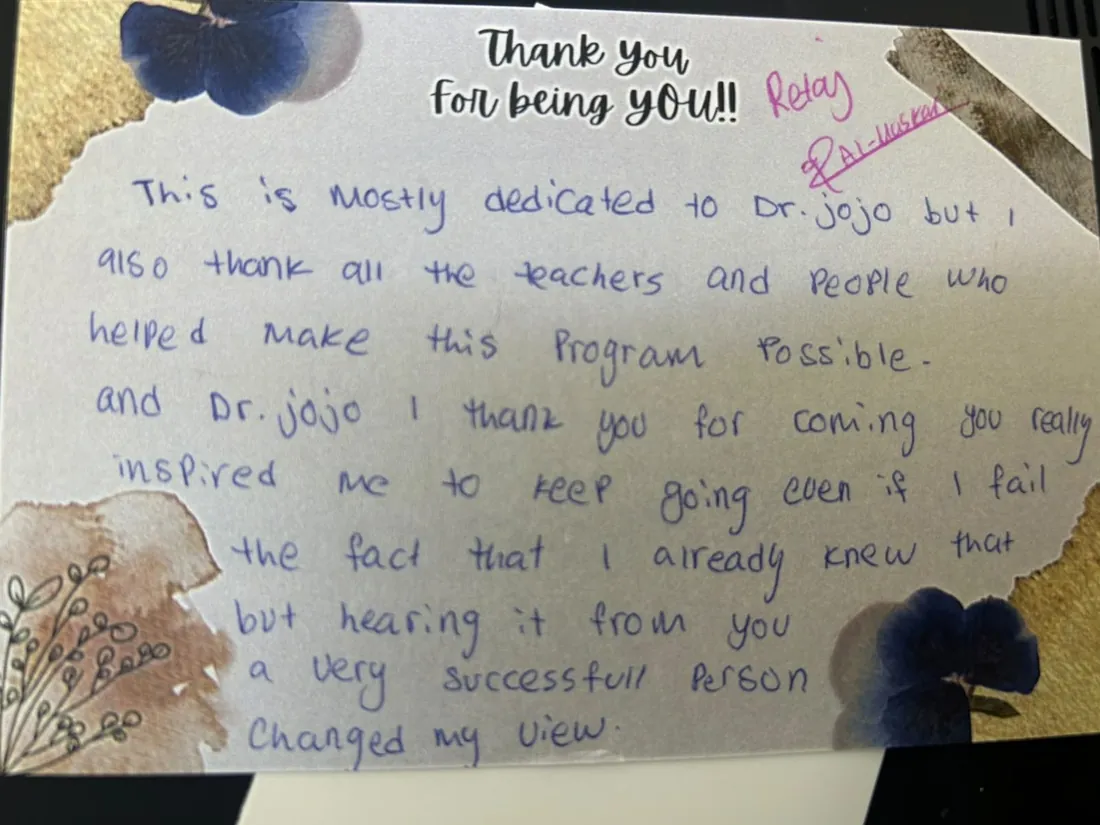 Thank you
for being yOU!!
Retaj
Al-Muskan
This is mostly dedicated to Dr. jojo but I
also thank all the teachers and people who
helped make this program possible.
and Dr. jojo I thank you for coming you really
inspired me to keep going even if I fail
the fact that I already knew that
but hearing it from you
a very successfull person
Changed my view.